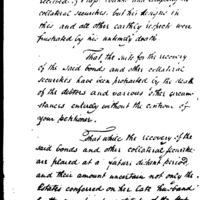 collateral securities, but his designs in
this and all other earthly respects were
frustrated by his untimely death.
That, the suits for the recovery
of the said bonds and other collateral
securities have been protracted by the death
of the debtors and various other circum
stances entirely without the controul of
your petitioner.
That while the recovery of the
said bonds and other collateral securities
are placed at a future distant period,
and their amount uncertain not only the
Estates conferred on her late husband